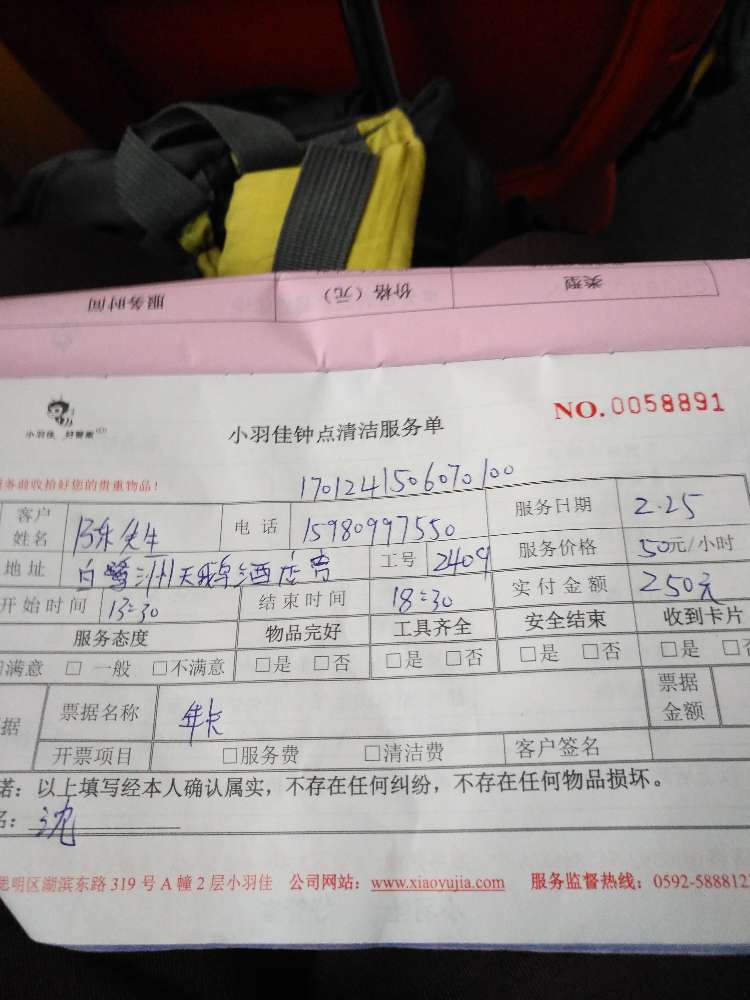 服务时间 价格（元） 类型
小羽佳 好管家
小羽佳钟点清洁服务单
NO.0058891
务前收拾好您的贵重物品！
1701241506070100
客户姓名 陈先生 电话 15980997550 服务日期 2.25
地址 白鹭洲天鹅酒店 工号 2409 服务价格 50元/小时
开始时间 13:30 结束时间 18:30 实付金额 250元
服务态度 物品完好 工具齐全 安全结束 收到卡片
满意 □ 一般 □不满意 □是 □否 □是 □否 □是 □否 □是
据 票据名称 年卡 票据金额
开票项目 □服务费 □清洁费 客户签名
诺：以上填写经本人确认属实，不存在任何纠纷，不存在任何物品损坏。
名：沈
思明区湖滨东路319号A幢2层小羽佳 公司网站：www.xiaoyujia.com 服务监督热线：0592-588812